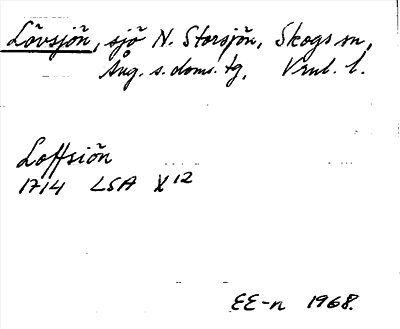 Lövsjön, sjö N. Storsjön, Skogs sn,
Ång. s. doms. tg, Vrnl. l.
Loffsiön
1714 LSA X 12
EE-n 1968.